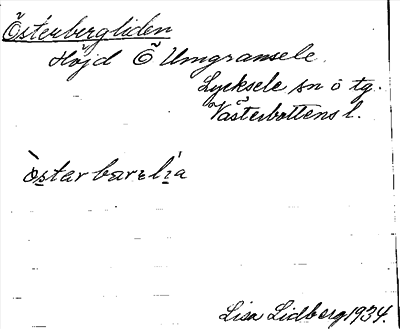 Österbergliden
Höjd Ö Umgransele.
Lycksele sn o tg.
Västerbottens l.
òstarbærɩlía
Lisa Lidberg 1934.